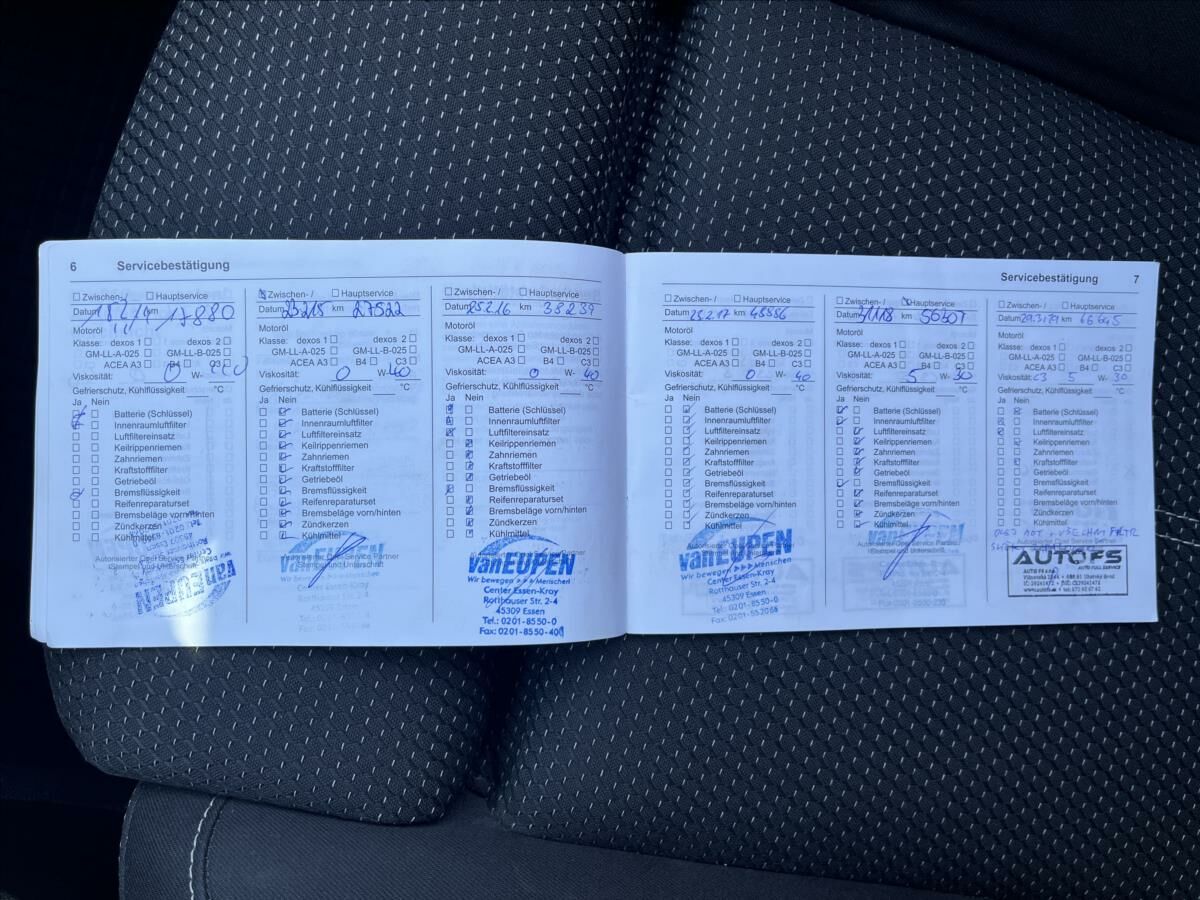 6 Servicebestätigung
Zwischen-/ Hauptservice
Datum km 17880
Motoröl
Klasse: dexos 1 dexos 2
GM-LL-A-025 GM-LL-B-025
ACEA A3 B4 C3
Viskosität: 0 W-
Gefrierschutz, Kühlflüssigkeit °C
Ja Nein
Batterie (Schlüssel)
Innenraumluftfilter
Luftfiltereinsatz
Keilrippenriemen
Zahnriemen
Kraftstofffilter
Getriebeöl
Bremsflüssigkeit
Reifenreparaturset
Bremsbeläge vorn/hinten
Zündkerzen
Kühlmittel
Autorisierter Opel Service Partner
(Stempel und Unterschrift)
vanEUPEN
Wir bewegen
45309 Essen
Zwischen-/ Hauptservice
Datum 23215 km 27522
Motoröl
Klasse: dexos 1 dexos 2
GM-LL-A-025 GM-LL-B-025
ACEA A3 B4 C3
Viskosität: 0 W- 40
Gefrierschutz, Kühlflüssigkeit °C
Ja Nein
Batterie (Schlüssel)
Innenraumluftfilter
Luftfiltereinsatz
Keilrippenriemen
Zahnriemen
Kraftstofffilter
Getriebeöl
Bremsflüssigkeit
Reifenreparaturset
Bremsbeläge vorn/hinten
Zündkerzen
Kühlmittel
Autorisierter Opel Service Partner
(Stempel und Unterschrift)
vanEUPEN
Wir bewegen Menschen
Center Essen-Kray
Rotthauser Str. 2-4
45309 Essen
Zwischen-/ Hauptservice
Datum 25.2.16 km 35239
Motoröl
Klasse: dexos 1 dexos 2
GM-LL-A-025 GM-LL-B-025
ACEA A3 B4 C3
Viskosität: 0 W- 40
Gefrierschutz, Kühlflüssigkeit °C
Ja Nein
Batterie (Schlüssel)
Innenraumluftfilter
Luftfiltereinsatz
Keilrippenriemen
Zahnriemen
Kraftstofffilter
Getriebeöl
Bremsflüssigkeit
Reifenreparaturset
Bremsbeläge vorn/hinten
Zündkerzen
Kühlmittel
vanEUPEN
Wir bewegen ►►► Menschen
Center Essen-Kray
Rotthauser Str. 2-4
45309 Essen
Tel.: 0201-8550-0
Fax: 0201-8550-400
Servicebestätigung 7
Zwischen-/ Hauptservice
Datum 23.2.17 km 48556
Motoröl
Klasse: dexos 1 dexos 2
GM-LL-A-025 GM-LL-B-025
ACEA A3 B4 C3
Viskosität: 0 W- 40
Gefrierschutz, Kühlflüssigkeit °C
Ja Nein
Batterie (Schlüssel)
Innenraumluftfilter
Luftfiltereinsatz
Keilrippenriemen
Zahnriemen
Kraftstofffilter
Getriebeöl
Bremsflüssigkeit
Reifenreparaturset
Bremsbeläge vorn/hinten
Zündkerzen
Kühlmittel
vanEUPEN
Wir bewegen ►►► Menschen
Center Essen-Kray
Rotthauser Str. 2-4
45309 Essen
Tel.: 0201-8550-0
Zwischen-/ Hauptservice
Datum km 56307
Motoröl
Klasse: dexos 1 dexos 2
GM-LL-A-025 GM-LL-B-025
ACEA A3 B4 C3
Viskosität: 5 W- 30
Gefrierschutz, Kühlflüssigkeit °C
Ja Nein
Batterie (Schlüssel)
Innenraumluftfilter
Luftfiltereinsatz
Keilrippenriemen
Zahnriemen
Kraftstofffilter
Getriebeöl
Bremsflüssigkeit
Reifenreparaturset
Bremsbeläge vorn/hinten
Zündkerzen
Kühlmittel
Autorisierter Opel Service Partner
(Stempel und Unterschrift)
vanEUPEN
Zwischen-/ Hauptservice
Datum 29.3.19 km 66645
Motoröl
Klasse: dexos 1 dexos 2
GM-LL-A-025 GM-LL-B-025
ACEA A3 B4 C3
Viskosität: C3 5 W- 30
Gefrierschutz, Kühlflüssigkeit °C
Ja Nein
Batterie (Schlüssel)
Innenraumluftfilter
Luftfiltereinsatz
Keilrippenriemen
Zahnriemen
Kraftstofffilter
Getriebeöl
Bremsflüssigkeit
Reifenreparaturset
Bremsbeläge vorn/hinten
Zündkerzen
Kühlmittel
AUTOFS
AUTO FULL SERVICE